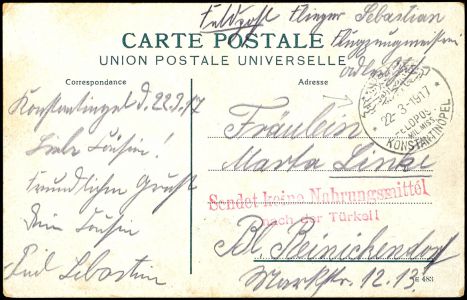 Feldpost Flieger Sebastian
CARTE POSTALE
Flugzeugmeister
UNION POSTALE UNIVERSELLE
Correspondance
Adresse
22.3.1917
FELDPOST
MIL. MISS.
KONSTANTINOPEL
Konstantinopel d. 22.3.17
Liebe Cousine!
Freundlichen Gruß
Dein Cousin
Sebastian
Fräulein
Marta Linke
Sendet keine Nahrungsmittel
nach der Türkei!
Bl Reinickendorf
Markstr. 12.13